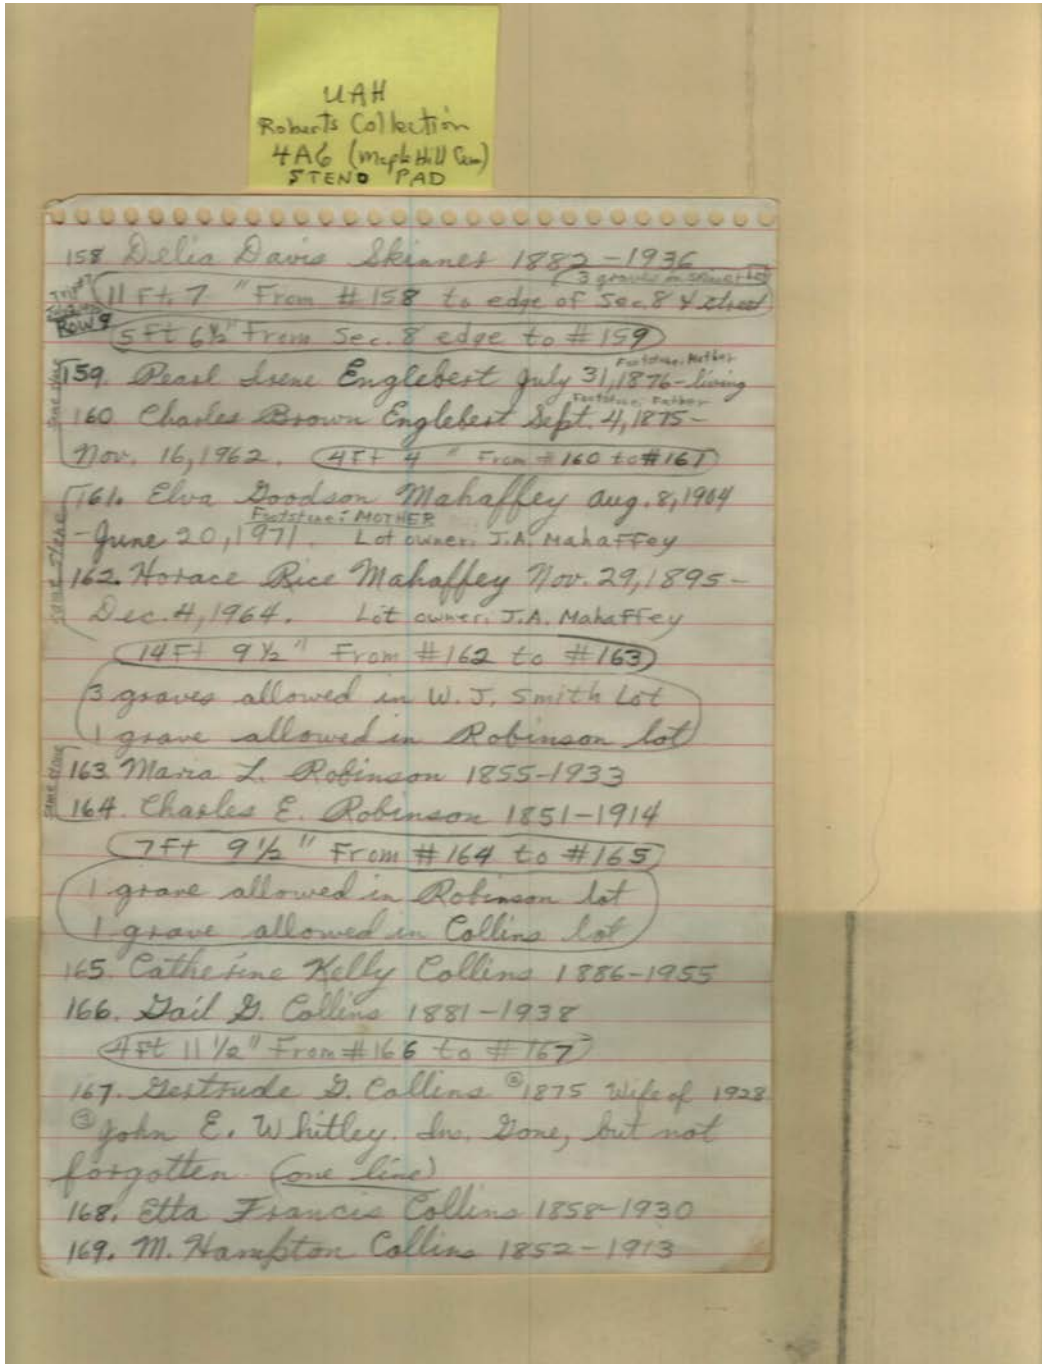 UAH
Roberts Collection
4A6 (Maple Hill Cem)
STENO PAD
158 Delia Davis Skinner 1882-1936
3 graves in Skinner Lot
11 Ft. 7 " From #158 to edge of Sec. 8 & street
ROW 9
5 Ft 6½" From Sec. 8 edge to #159
Footstone: Mother
159. Pearl Irene Englebert July 31, 1876-living
Footstone: Father
160 Charles Brown Englebert Sept. 4, 1875-
Nov. 16, 1962. 4 Ft 4 " From #160 to #161
same stone
161. Elva Goodson Mahaffey Aug. 8, 1904
Footstone: MOTHER
-June 20, 1971. Lot owner: J.A. Mahaffey
162. Horace Rice Mahaffey Nov. 29, 1895-
Dec. 4, 1964. Lot owner: J.A. Mahaffey
same stone
14 Ft 9½" From #162 to #163
3 graves allowed in W. J. Smith Lot
1 grave allowed in Robinson lot
163. Maria L. Robinson 1855-1933
164. Charles E. Robinson 1851-1914
same stone
7 Ft 9½" From #164 to #165
1 grave allowed in Robinson lot
1 grave allowed in Collins lot
165. Catherine Kelly Collins 1886-1955
166. Gail G. Collins 1881-1938
4 Ft 11½" From #166 to #167
167. Gertrude G. Collins ② 1875 Wife of 1928
③ John E. Whitley. Ins. Gone, but not
forgotten (one line)
168. Etta Francis Collins 1858-1930
169. M. Hampton Collins 1852-1913